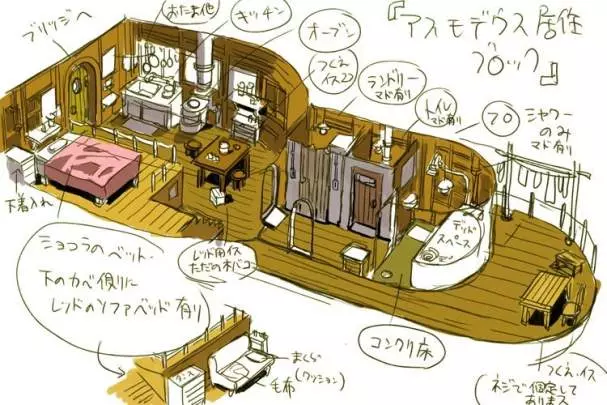 『アスモデウス居住
ブロック』
ブリッジへ
おたま他
キッチン
オーブン
つくえ
イス2つ
ランドリー
マド有り
トイレ
マド有り
フロ
シャワー
のみ
マド有り
下着入れ
デッド
スペース
レッド用イス
ただの木バコ
ショコラのベット・
下のカベ側りに
レッドのソファベッド有り
コンクリ床
まくら
(クッション)
毛布
タンス
つくえ・イス
(ネジで固定して
あります